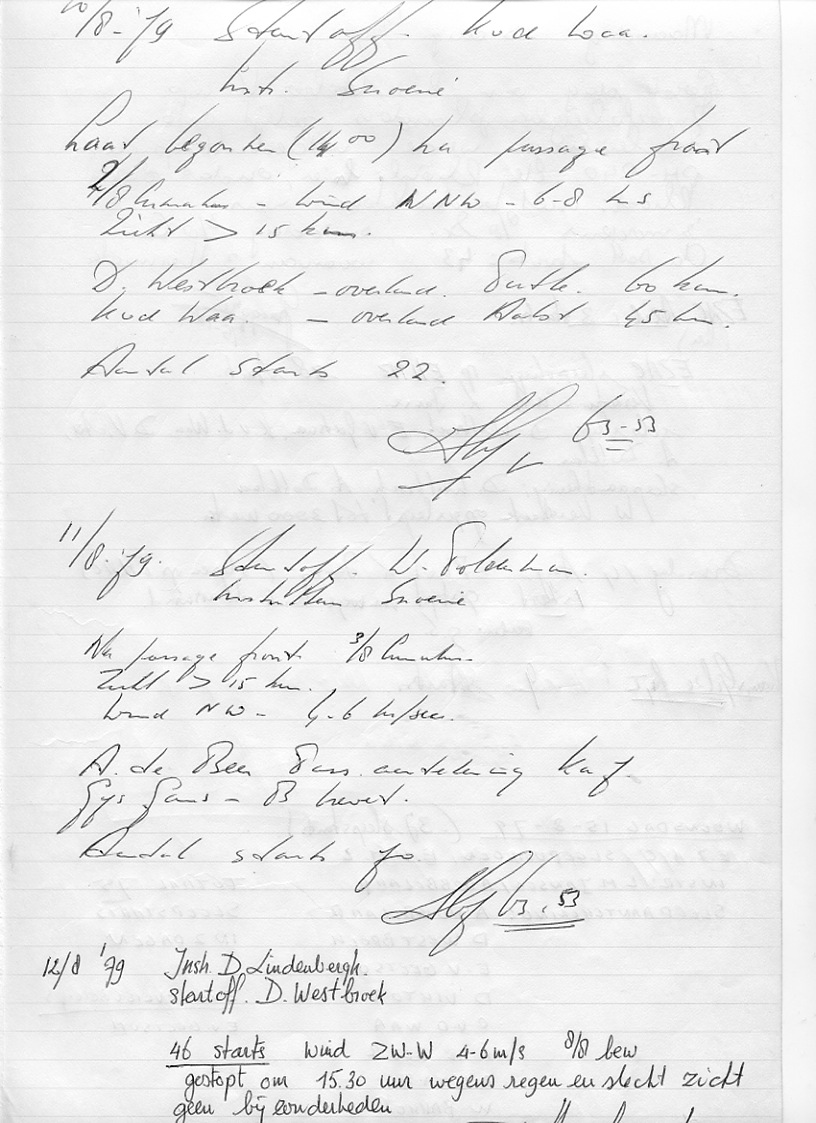 10/8-'79 Startoff. Rud Waa.
Instr. Snoeie
Laat begonnen (14.00) na passage front
2/8 Cumulus - wind NNW - 6-8 m s
Zicht > 15 km.
D. Westbroek - overland. 60 km.
Rud Waa. - overland Aalst 45 km.
Aantal starts 22.
63-53
11/8-'79. Startoff. W. Polderman.
Snoeie
Na passage front. 3/8 Cumulus.
Zicht > 15 km.
Wind NW - 4-6 m/sec.
A. de Beer aantekening Ka 7.
Gijs Gans - B brevet.
Aantal starts 70.
63.53
12/8 '79 Instr. D. Lindenbergh.
startoff. D. Westbroek
46 starts wind ZW-W 4-6 m/s 8/8 bew
gestopt om 15.30 uur wegens regen en slecht zicht
geen bijzonderheden